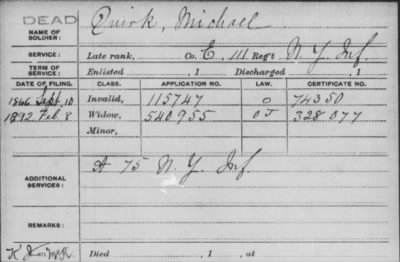 DEAD
NAME OF SOLDIER: Quirk, Michael
SERVICE: Late rank, Co. E, 111 Reg't N. Y. Inf.
TERM OF SERVICE: Enlisted , 1 Discharged , 1
DATE OF FILING. CLASS. APPLICATION NO. LAW. CERTIFICATE NO.
1866 Sept. 10 Invalid, 115747 O 74350
1892 Feb 8 Widow, 540955 O J 328077
Minor,
ADDITIONAL SERVICES: A 75 N. Y. Inf.
REMARKS:
Died , 1 , at